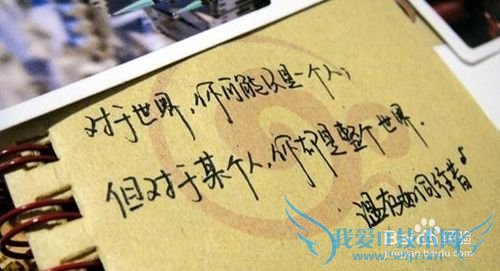 对于世界，你可能只是一个人；
但对于某个人，你却是整个世界.
温在如同往昔
我爱IT技术网
Baidu 经验